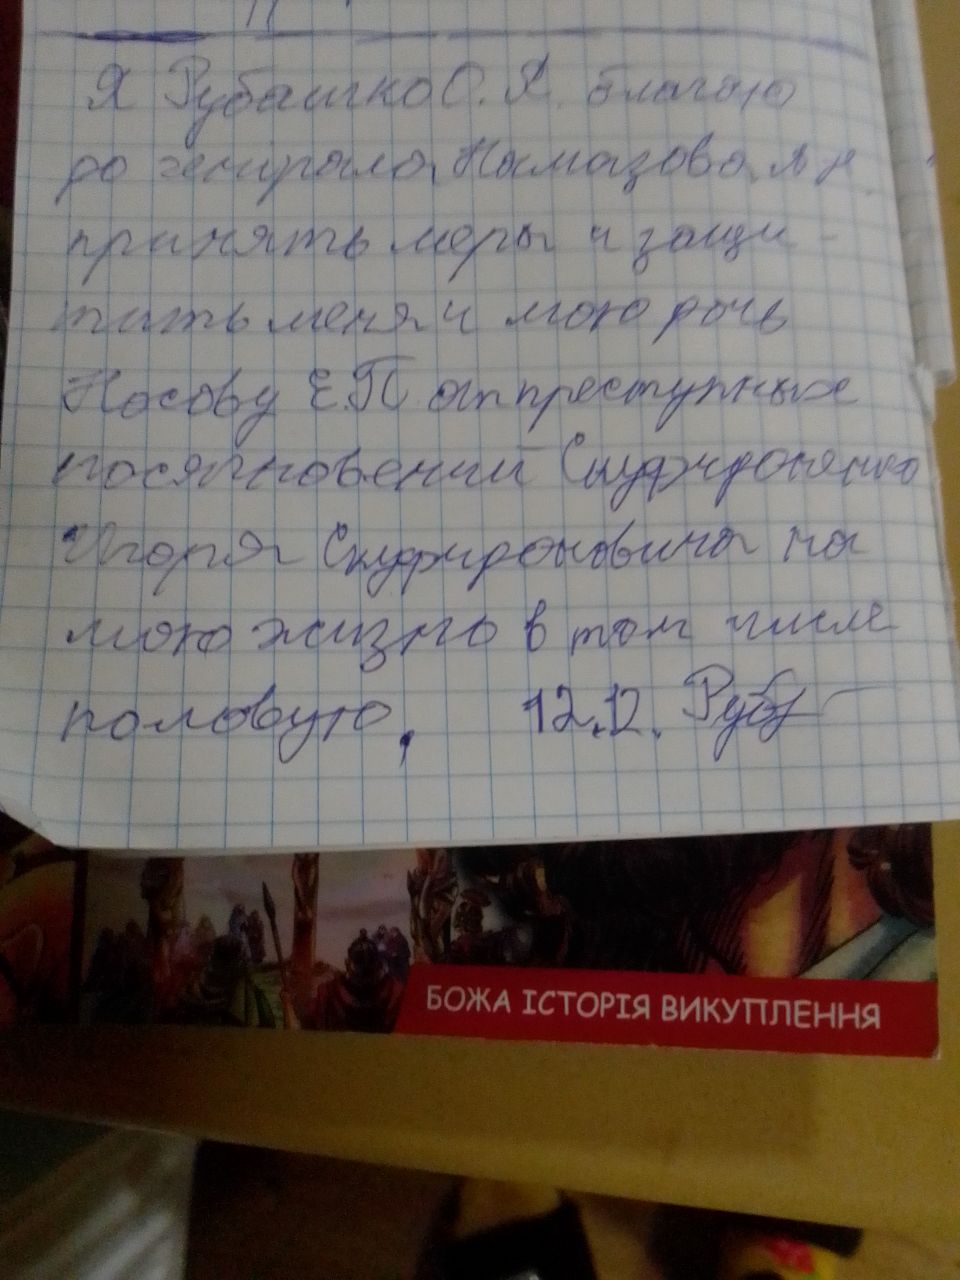 Я Рубашко С. Я. благаю
до генірала, Намазова
принять меры и защи-
тить меня и мою дочь
Носову Е.П от преступных
посягновений
Игоря на
мою жизнь в том числе
половую. 12.12. Руб
БОЖА ІСТОРІЯ ВИКУПЛЕННЯ